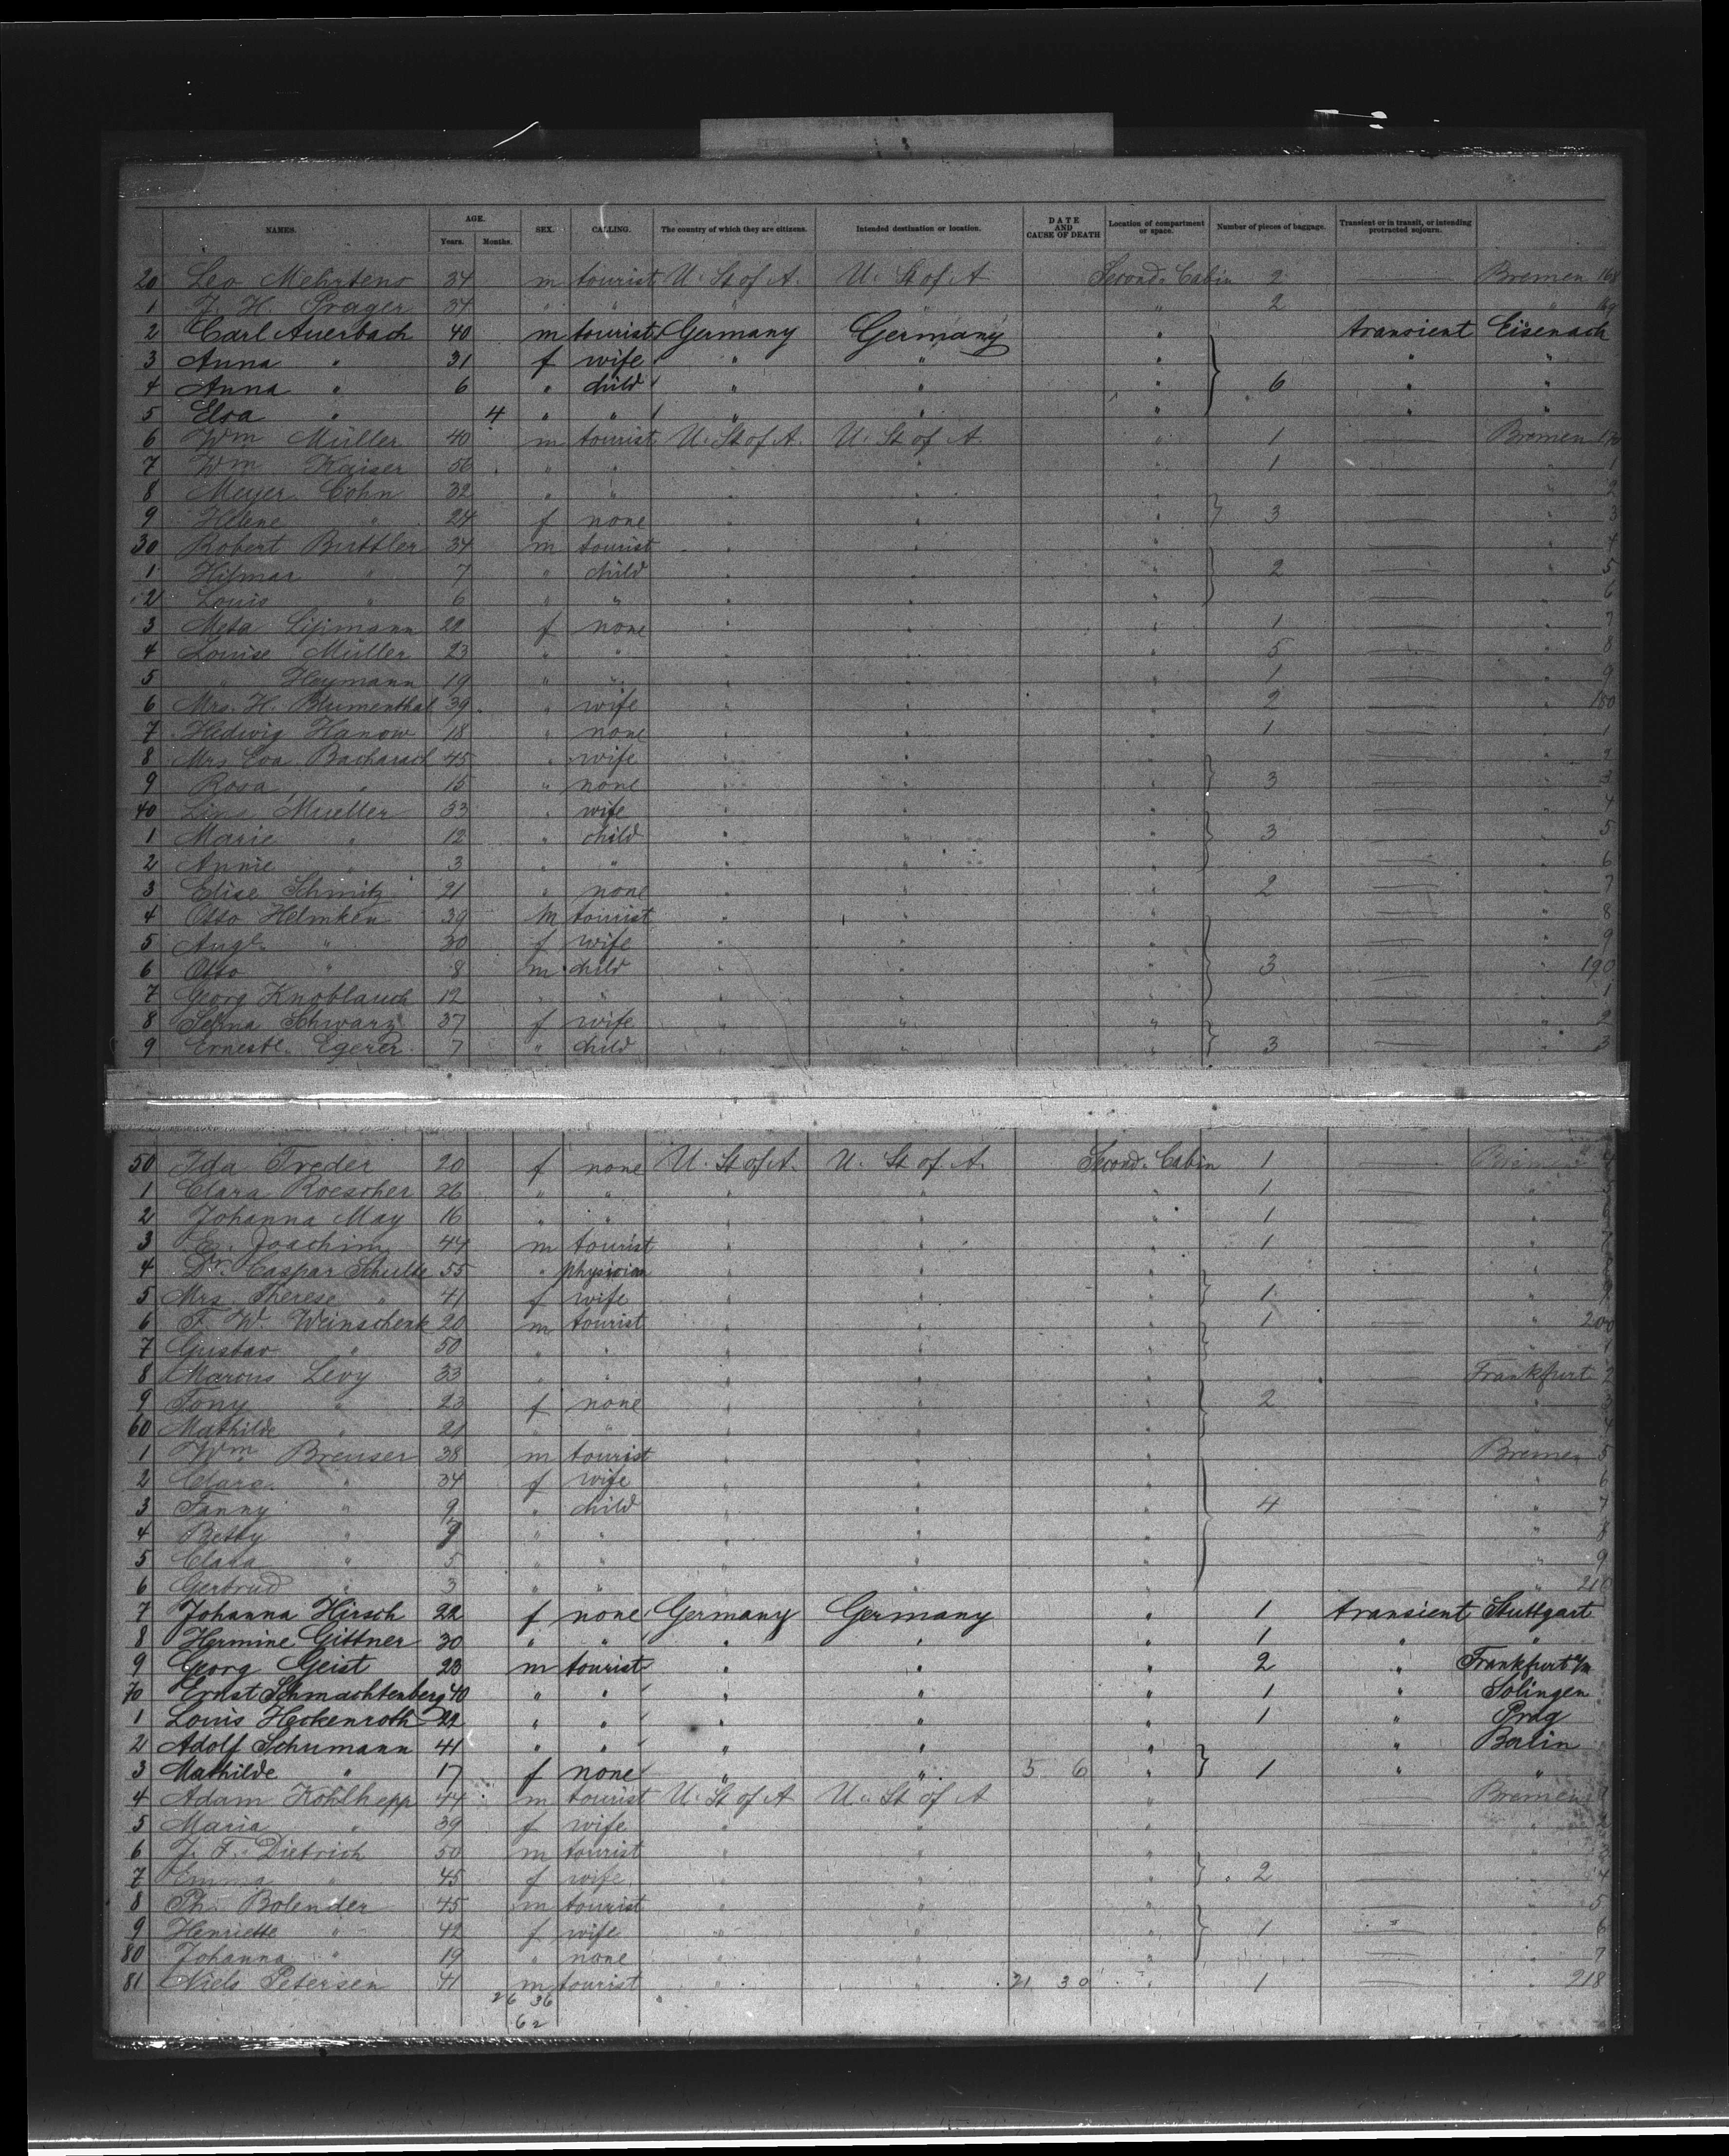 NAMES. AGE. Years. Months. SEX. CALLING. The country of which they are citizens. Intended destination or location. DATE AND CAUSE OF DEATH Location of compartment or space. Number of pieces of baggage. Transient or in transit, or intending protracted sojourn.
20 Leo Mehrtens 34 m tourist U. St of A. U. St of A Second Cabin 2 Bremen 168
1 J. H. Prager 34 " " " " " 2 " 169
2 Carl Auerbach 40 m tourist Germany Germany " transient Eisenach
3 Anna " 31 f wife " " " " "
4 Anna " 6 " child " " " 6 " "
5 Elsa " 4 " " " " " " "
6 Wm Müller 40 m tourist U. St of A. U. St of A " 1 Bremen 170
7 Wm Kaiser 56 " " " " " 1 " 1
8 Meyer Cohn 32 " " " " " " 2
9 Helene " 24 f none " " " 3 " 3
30 Robert Buttler 34 m tourist " " " " 4
1 Hilmar " 7 " child " " " 2 " 5
2 Louis " 6 " " " " " " 6
3 Meta Lipmann 22 f none " " " 1 " 7
4 Louise Müller 23 " " " " " 5 " 8
5 " Heymann 19 " " " " " 1 " 9
6 Mrs. H. Blumenthal 39 " wife " " " 2 " 180
7 Hedwig Hanow 18 " none " " " 1 " 1
8 Mrs Eva Bacharach 45 " wife " " " " 2
9 Rosa " 15 " none " " " 3 " 3
40 Lina Mueller 33 " wife " " " " 4
1 Marie " 12 " child " " " 3 " 5
2 Annie " 3 " " " " " " 6
3 Elise Schmitz 21 " none " " " 2 " 7
4 Otto Helmken 39 m tourist " " " " 8
5 Auge " 30 f wife " " " " 9
6 Otto " 8 m child " " " 3 " 190
7 Georg Knoblauch 12 " " " " " " 1
8 Selma Schwarz 37 f wife " " " " 2
9 Erneste. Egerer 7 " child " " " 3 " 3
50 Ida Treder 20 f none U. St of A. U. St of A. Second Cabin 1 Bremen 4
1 Clara Roescher 26 " " " " " 1 " 5
2 Johanna May 16 " " " " " 1 " 6
3 E. Joachim 44 m tourist " " " 1 " 7
4 Dr. Caspar Schulte 55 " physician " " " " 8
5 Mrs. Therese " 41 f wife " " " 1 " 9
6 F. W. Weinschenk 20 m tourist " " " 1 " 200
7 Gustav " 50 " " " " " " 1
8 Marcus Levy 33 " " " " " Frankfurt 2
9 Tony " 23 f none " " " 2 " 3
60 Mathilde " 21 " " " " " " 4
1 Wm Breuser 38 m tourist " " " Bremen 5
2 Clara " 34 f wife " " " " 6
3 Fanny " 9 " child " " " 4 " 7
4 Betty " 7 " " " " " " 8
5 Clara " 5 " " " " " " 9
6 Gertrud " 3 " " " " " " 210
7 Johanna Hirsch 22 f none Germany Germany " 1 transient Stuttgart
8 Hermine Gittner 30 " " " " " 1 " "
9 Georg Geist 23 m tourist " " " 2 " Frankfurt a/m
70 Ernst Schmachtenberg 40 " " " " " 1 " Solingen
1 Louis Heckenroth 22 " " " " " 1 " Prag
2 Adolf Schumann 41 " " " " " " Berlin
3 Mathilde " 17 f none " " 5 6 " 1 " "
4 Adam Kohlhepp 44 m tourist U. St of A U. St of A " Bremen 1
5 Maria " 39 f wife " " " " 2
6 J. F. Dietrich 50 m tourist " " " " 3
7 Emma " 45 f wife " " " 2 " 4
8 Ph. Bolender 45 m tourist " " " " 5
9 Henriette " 42 f wife " " " 1 " 6
80 Johanna " 19 " none " " " " 7
81 Niels Petersen 41 m tourist " " 21 30 " 1 218
26 36
62